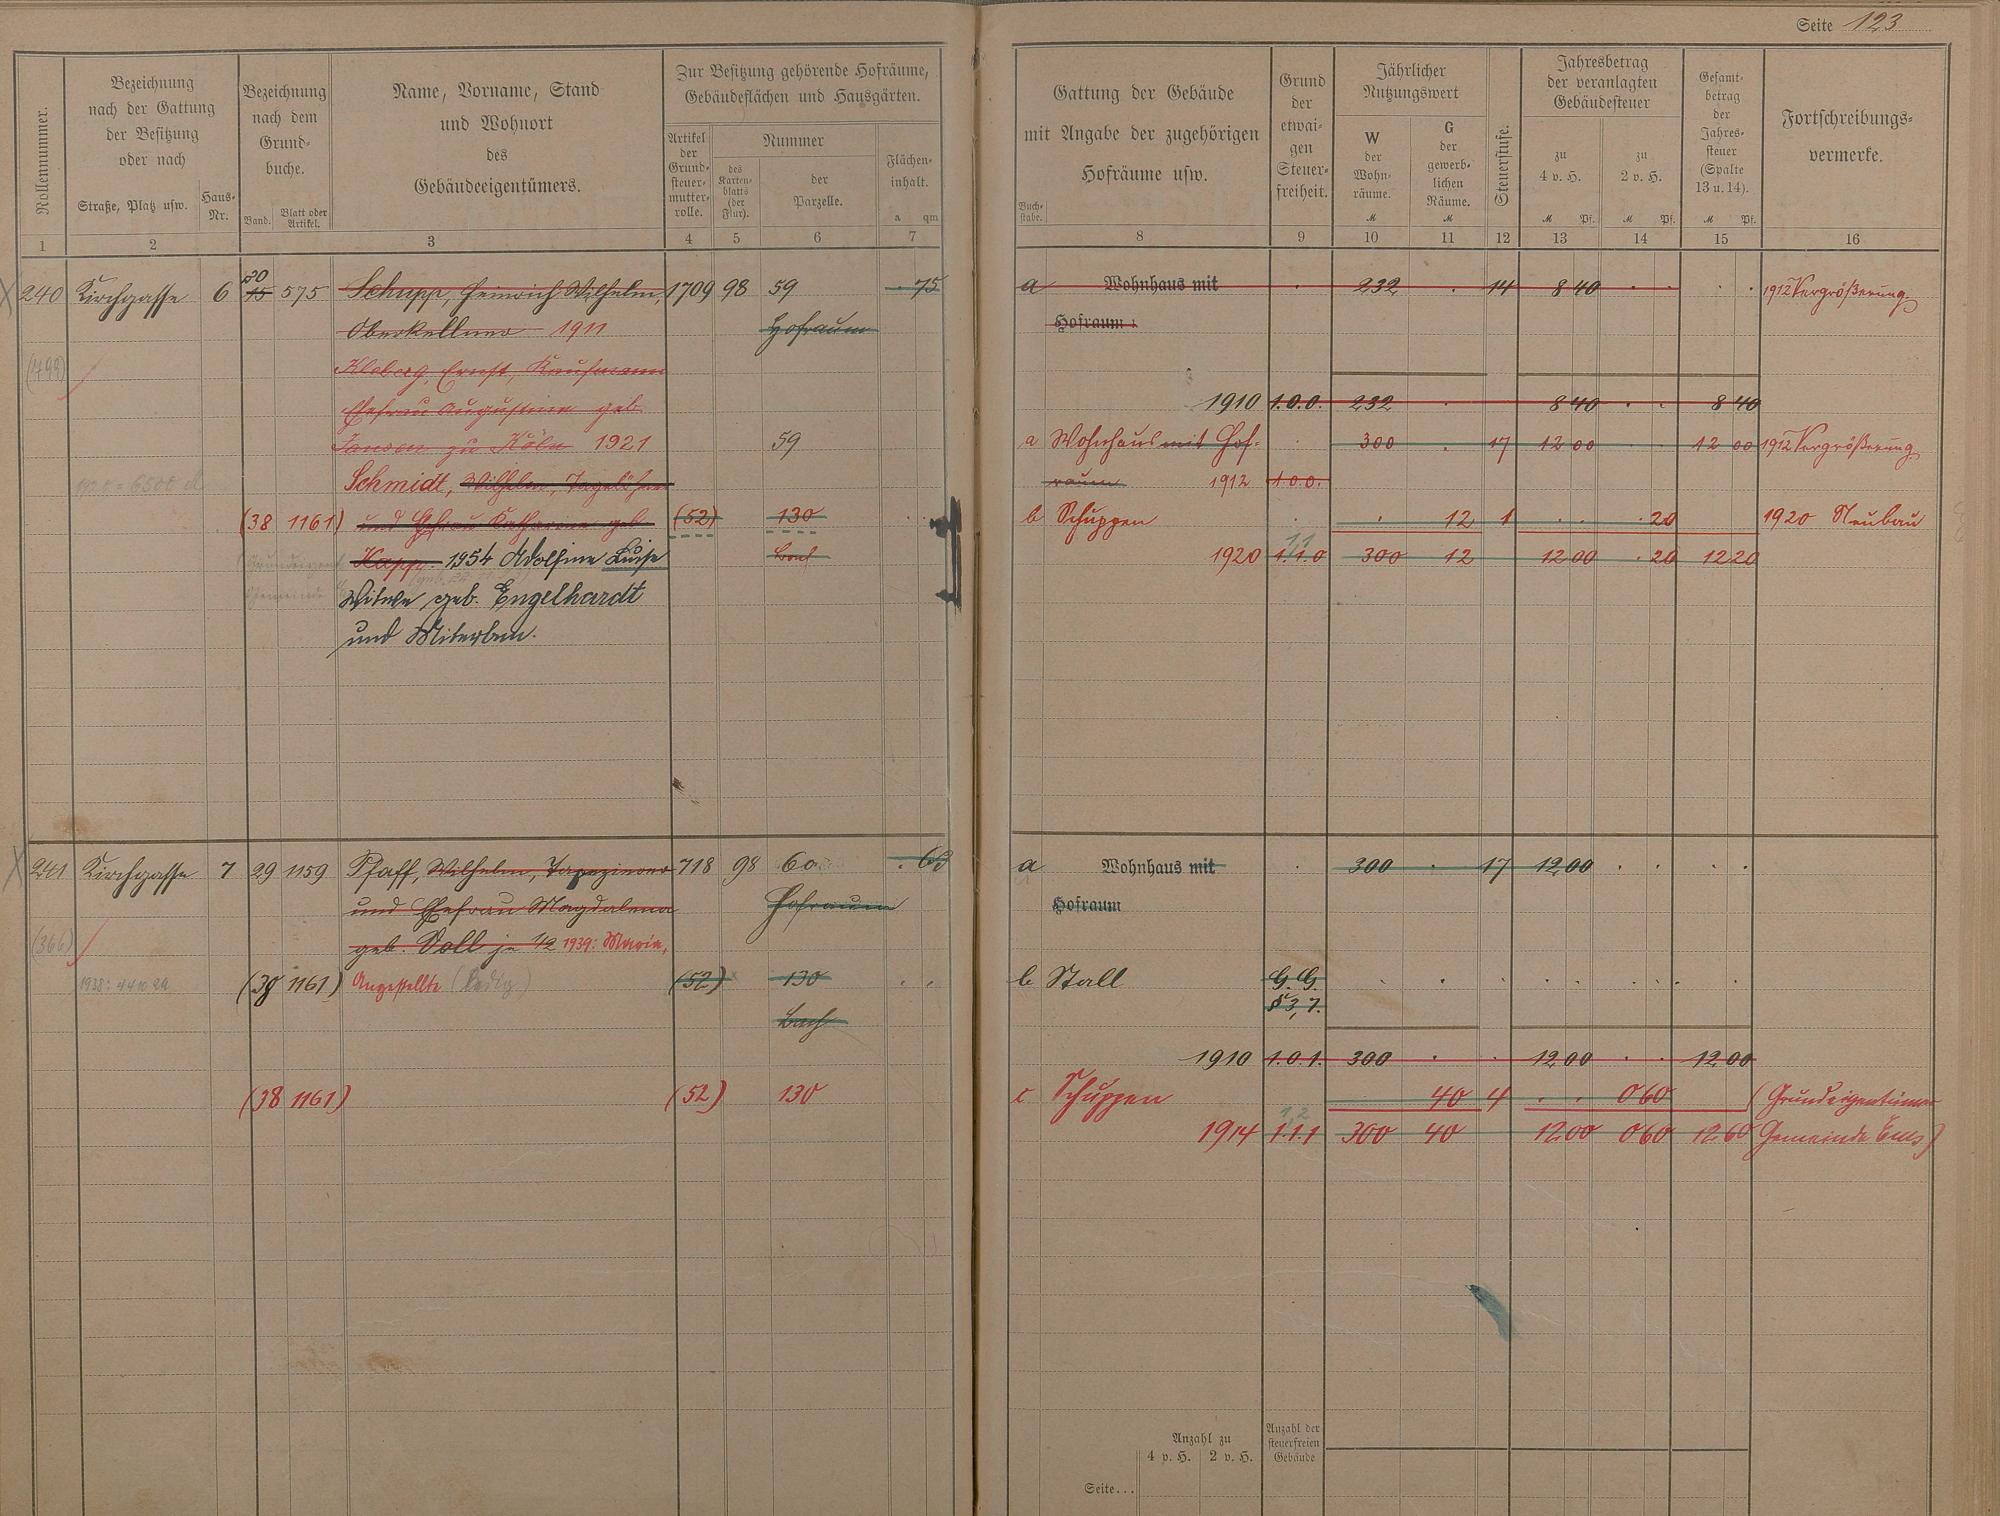 Seite 123
Rollennummer.
Bezeichnung
nach der Gattung
der Besitzung
oder nach
Straße, Platz usw.
Haus-
Nr.
Bezeichnung
nach dem
Grund-
buche.
Band.
Blatt oder
Artikel.
Name, Vorname, Stand
und Wohnort
des
Gebäudeeigentümers.
Zur Besitzung gehörende Hofräume,
Gebäudeflächen und Hausgärten.
Artikel
der
Grund-
steuer-
mutter-
rolle.
Nummer
des
Karten-
blatts
(der
Flur).
der
Parzelle.
Flächen-
inhalt.
a qm
Gattung der Gebäude
mit Angabe der zugehörigen
Hofräume usw.
Buch-
stabe.
Grund
der
etwai-
gen
Steuer-
freiheit.
Jährlicher
Nutzungswert
W
der
Wohn-
räume.
M
G
der
gewerb-
lichen
Räume.
M
Steuerstufe.
Jahresbetrag
der veranlagten
Gebäudesteuer
zu
4 v. H.
M Pf.
zu
2 v. H.
M Pf.
Gesamt-
betrag
der
Jahres-
steuer
(Spalte
13 u. 14).
M Pf.
Fortschreibungs-
vermerke.
1 2 3 4 5 6 7 8 9 10 11 12 13 14 15 16
20
240 Kirchgasse 6 15 575 Schupp, Heinrich Wilhelm, 1709 98 59 . 75 a Wohnhaus mit . 232 . 14 8 40 . . . . 1912 Vergrößerung
Oberkellner 1911 Hofraum Hofraum
(499) Kloberg, Ernst, Kaufmann
Ehefrau Augustine geb. 1910 1.0.0. 232 . 8 40 . . 8 40
Janson zu Köln 1921 59 a Wohnhaus mit Hof- . 300 . 17 12 00 12 00 1912 Vergrößerung
Schmidt, Wilhelm, Tagelöhner raum 1912 1.0.0.
(38 1161) und Ehefrau Katharina geb. (52) 130 b Schuppen . . 12 1 . . . 20 1920 Neubau
Happ. 1954 Adolfine Luise Bach 1920 1.1.0 300 12 12 00 . 20 12 20
Witwe geb. Engelhardt
und Miterben.
241 Kirchgasse 7 29 1159 Pfaff, Wilhelm, Tapezierer 718 98 60 . 63 a Wohnhaus mit . 300 . 17 12 00 . . . .
und Ehefrau Magdalena Hofraum Hofraum
(366) geb. Doll je 1/2 1939: Maria,
(38 1161) Angestellte (ledig) (52) 130 . . b Stall G. G.
Bach § 3, 7.
1910 1.0.1. 300 . . 12 00 . . 12 00
(38 1161) (52) 130 c Schuppen 40 4 . . 0 60 (Grundeigentümer
1,2
1914 1.1.1 300 40 12 00 0 60 12 60 Gemeinde Ems)
Anzahl zu
4 v. H. 2 v. H.
Anzahl der
steuerfreien
Gebäude
Seite...